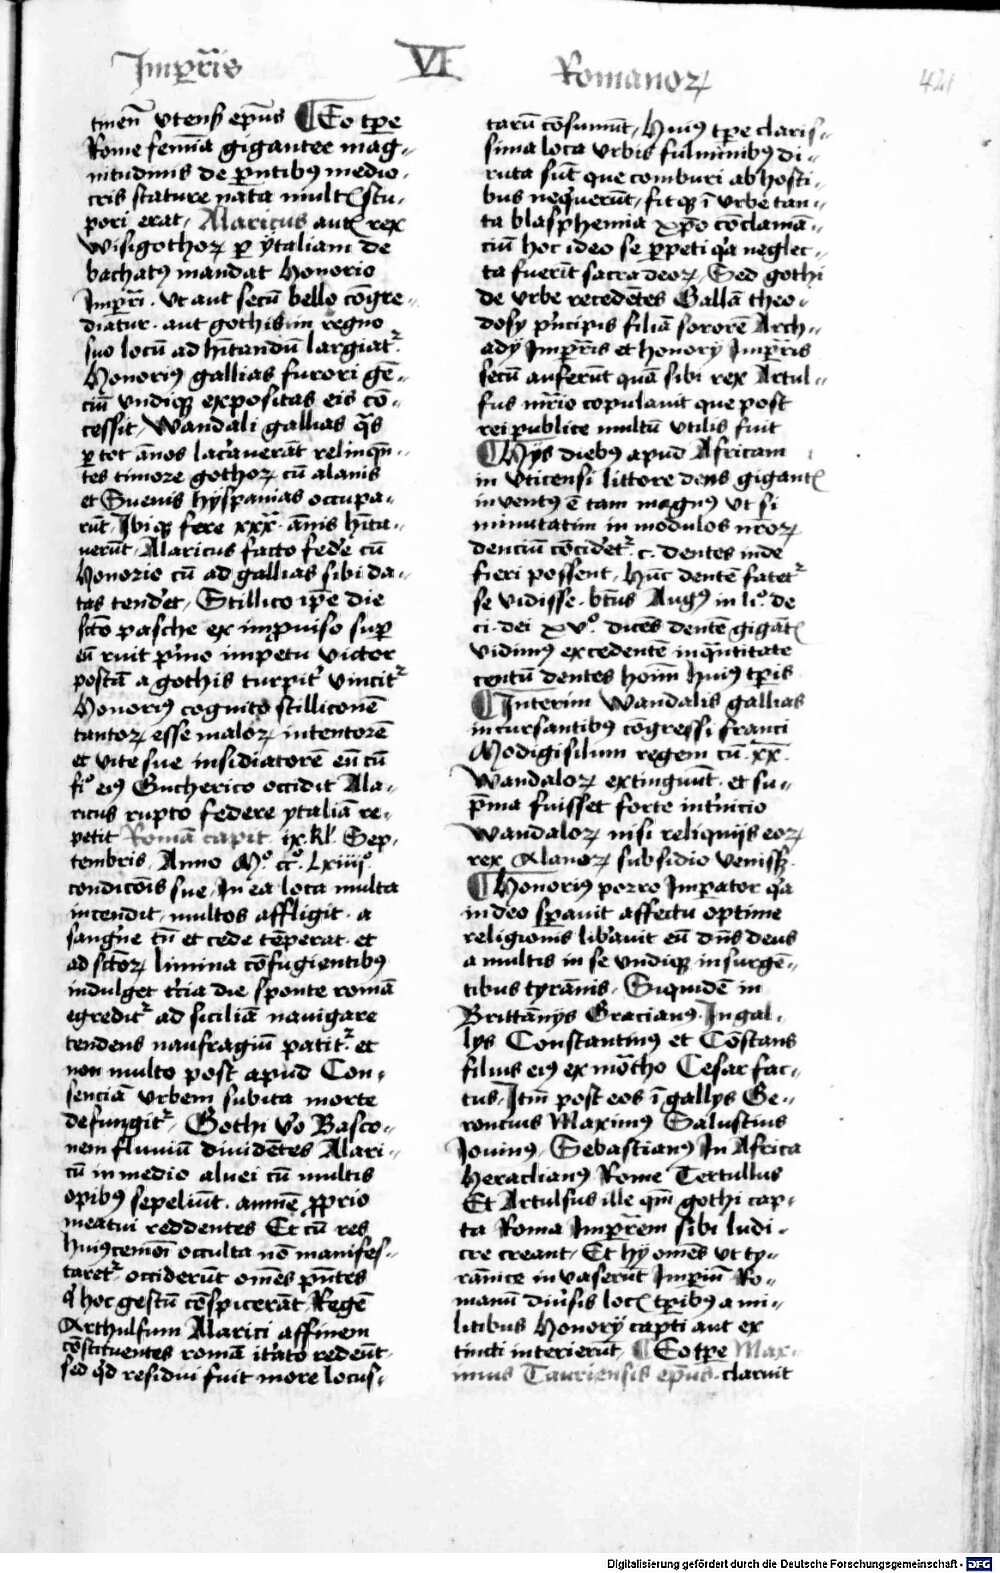 Imp̄ris VI Romanoꝝ 421
tinen̄ vtens̄ ep̄us ¶ Eo tp̄e
Rome femīa gigantee mag-
nitudinis de pn̄tibus medio-
cris stature nata mult stu-
pori erat, Alaricus aut rex
Wisigothoꝝ ꝑ ytaliam de
bachatꝰ mandat honorio
Imp̄ri. Vt aut secū bello cōgre-
diātur. aut gothis in regno
suo locū ad hītandū largiat̄
Honoriꝰ gallias furori gē-
ciū vndiqꝫ expositas eis cō-
cessit, Wandali gallias qͣs
ꝑ tot ānos laceauerāt relinqn̄-
tes timore gothoꝝ cū alanis
et Sueuis hyspanias occupa-
rūt, Ibiqꝫ fere xxx. ānis hīta-
uerūt, Alaricus facto fed'e cū
Honorio cū ad gallias sibi da-
tas tend'et, Stillico ip̄e die
scō pasche ex imꝓuiso suꝑ
eū ruit p'mo impetu victor
postū a gothis turpit' vincit̄
Honoriꝰ cognito stilliconē
tantoꝝ esse maloꝝ intentorē
et vite sue insidiatorē eū cū
fi° eiꝰ Eucherico occidit Ala-
ricus rupto federe ytaliā re-
petit Romā capit. ix. kl' Sep-
tembris, Anno M° cc°. Lxiiii°
condicōis sue, In ea loca multa
incendit, multos affligit. a
sang'ne tn̄ et cede tēperat. et
ad scōꝝ limina cōfugientibꝰ
indulget t'cia die sponte romā
egredit̄ ad siciliā nauigare
tendens naufragiū patit̄. et
non multo post apud Con-
senciā vrbem subita morte
defungit̄, Gothi v'o Basco-
nem fluuiū diuidētes Alari-
cū in medio aluei cū multis
opibꝰ sepeliūt. amnē ꝓprio
meatui reddentes Et cū res
huiꝰcemōi occulta nō manifes-
taret̄ occiderūt omēs pn̄tes
q' hoc gestū cōspicerāt Regē
Arthulfum Alarici affinem
cōstituentes romā it'ato redeūt,
sed q'd residui fuit more locus-
tarū cōsumūt, Huiꝰ tp̄e claris-
sima loca vrbis fulminibꝰ di-
ruta sūt que comburi ab hosti-
bus neq'uerūt, fit qꝫ ī vrbe tan-
ta blasphemia xp̄o cōclamā-
ciū hoc ideo se ꝑpeti q'a neglec-
ta fuerīt sacra deoꝝ, Sed gothi
de vrbe recedētes Gallā theo-
dosy p'ncipis filiā sororē Arch-
ady Imp̄ris et honory Imp̄ris
secū auferūt quā sibi rex Artul-
fus mr̄io copulauit que post
rei publice multū vtilis fuit
¶ Hijs diebus apud Africam
in vticensi littore dens gigant
inuentꝰ ē tam magnꝰ vt si
minutatim in modulos nr̄oꝝ
denciū cōcid'et̄. c. dentes inde
fieri possent, Hūc dentē fatet̄
se vidisse. bt̄us Augꝰ in li°. de
ci. dei xv°. dices dentē gigāt
vidimꝰ excedentē in q'ntitate
centū dentes hoīm huiꝰ tp̄is
¶ Interim Wandalis gallias
incursantibꝰ cōgressi franci
Modigisilum regem cū. xx.
Wandaloꝝ extingunt. et su-
p̄ma fuisset forte int'nicio
Wandaloꝝ nisi reliquijs eoꝝ
rex Alanoꝝ subsidio veniss;
¶ Honoriꝰ porro Imperator q'a
in deo sꝑauit affectu optime
religionis lib'auit eū dn̄s deus
a multis in se vndiqꝫ insurgē-
tibus tyrānis, Siquidē in
Brittānys Gracianꝰ, In gal-
lys Constantinꝰ et Cōstans
filius eiꝰ ex mōcho Cesar fac-
tus, Itm̄ post eos ī gallys Ge-
roncius Maximꝰ Salustius
Iouinꝰ, Sebastianꝰ In Africa
Heraclianꝰ Rome Tertullus
Et Artulfus ille qm̄ gothi cap-
ta Roma Imp̄rem sibi ludi-
cre creant, Et hy omēs vt ty-
rānice inuaserūt Imp̄riū Ro-
manū diu'sis loc tp̄ibꝰ a mi-
litibus Honory capti aut ex
tincti interierūt, ¶ Eo tp̄e Max-
imus Tauriensis ep̄us. claruit
Digitalisierung gefördert durch die Deutsche Forschungsgemeinschaft - DFG